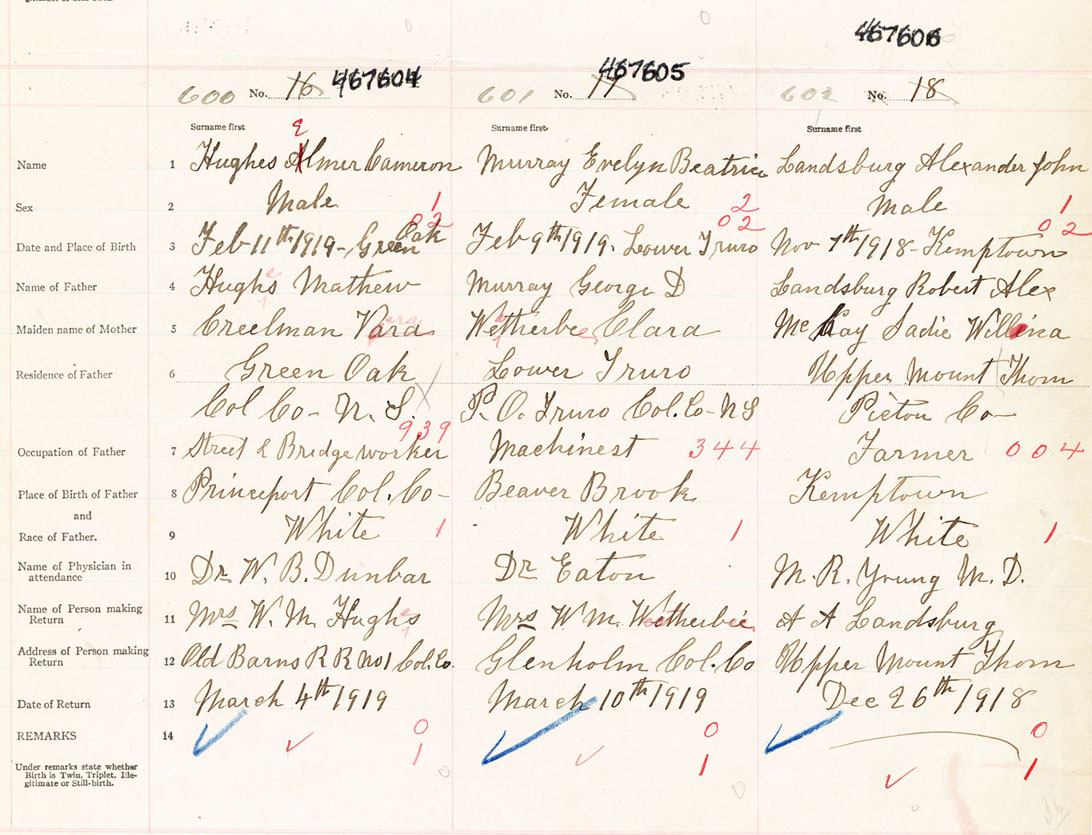 467606
600 No. 16 467604 601 No. 17 467605 602 No. 18
Surname first Surname first Surname first
e
Name 1 Hughes Almer Cameron Murray Evelyn Beatrice Landsburg Alexander John
Sex 2 Male 1 Female 2 Male 1
02 02 02
Date and Place of Birth 3 Feb 11th 1919 - Green Oak Feb 9th 1919. Lower Truro Nov 7th 1918 - Kemptown
Name of Father 4 Hughs Mathew Murray George D Landsburg Robert Alex
Maiden name of Mother 5 Creelman Vara Wetherbee Clara McKay Sadie Willina
Residence of Father 6 Green Oak Lower Truro Upper Mount Thom
Col Co - N. S. P. O. Truro Col. Co - N S Pictou Co
939
Occupation of Father 7 Street & Bridge worker Machinest 344 Farmer 004
Place of Birth of Father 8 Princeport Col. Co - Beaver Brook Kemptown
and
Race of Father. 9 White 1 White 1 White 1
Name of Physician in
attendance 10 Dr. W. B. Dunbar Dr Eaton M. R. Young M. D.
Name of Person making
Return 11 Mrs W. M. Hughs Mrs W M. Wetherbie A A Landsburg
Address of Person making
Return 12 Old Barns R R No 1 Col. Co. Glenholm Col. Co Upper Mount Thom
Date of Return 13 March 4th 1919 March 10th 1919 Dec 26th 1918
REMARKS 14 0 0 0
1 1 1
Under remarks state whether
Birth is Twin, Triplet, Ille-
gitimate or Still-birth.